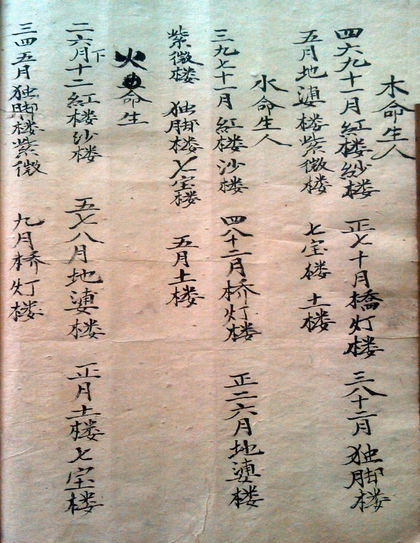 木命生人
四六九十一月紅楼紗楼 正七十月橋灯楼 三八十二月独脚楼
五月地婆楼紫微楼 七宝楼 土楼
水命生人
三九七十一月紅楼沙楼 四八十二月桥灯楼 正二六月地婆楼
紫微楼 独脚楼七宝楼 五月土楼
火命生
二六月十一下紅楼沙楼 五七八月地婆楼 正月土楼七宝楼
三四五月独脚楼紫微 九月桥灯楼